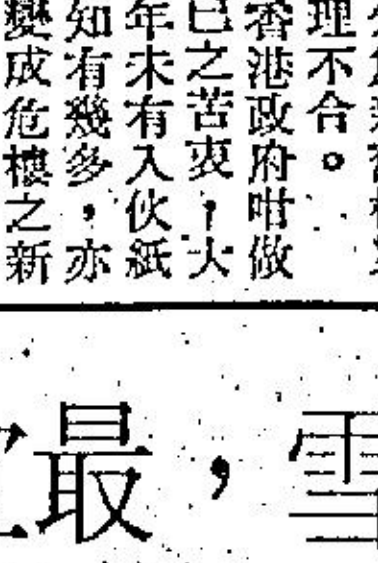 理不合。
香港政府咁做
已之苦衷，大
年未有入伙紙
知有幾多，亦
變成危樓之新
雪，最